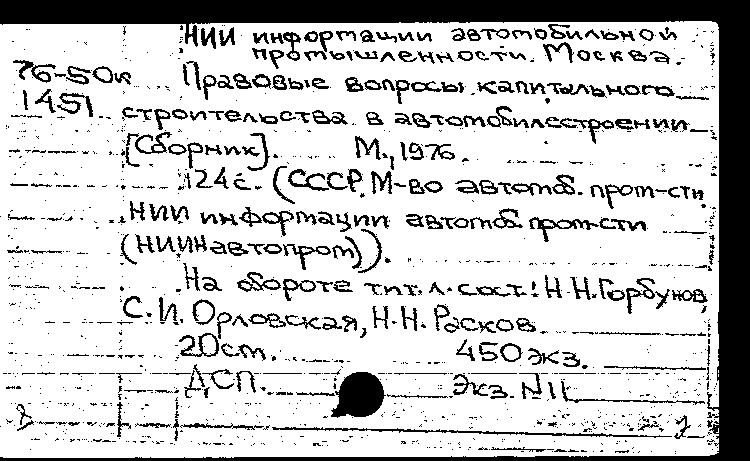 НИИ информации автомобильной
промышленности. Москва.
76-50к Правовые вопросы капитального
1451 строительства в автомобилестроении
[Сборник]. М., 1976.
124с. (СССР. М-во автомоб. пром-сти.
НИИ информации автомоб. пром-сти
(НИИНавтопром)).
На обороте тит. л. сост.: Н.Н. Горбунов,
С.И. Орловская, Н.Н. Расков.
20см. 450 экз.
ДСП. Экз. N11